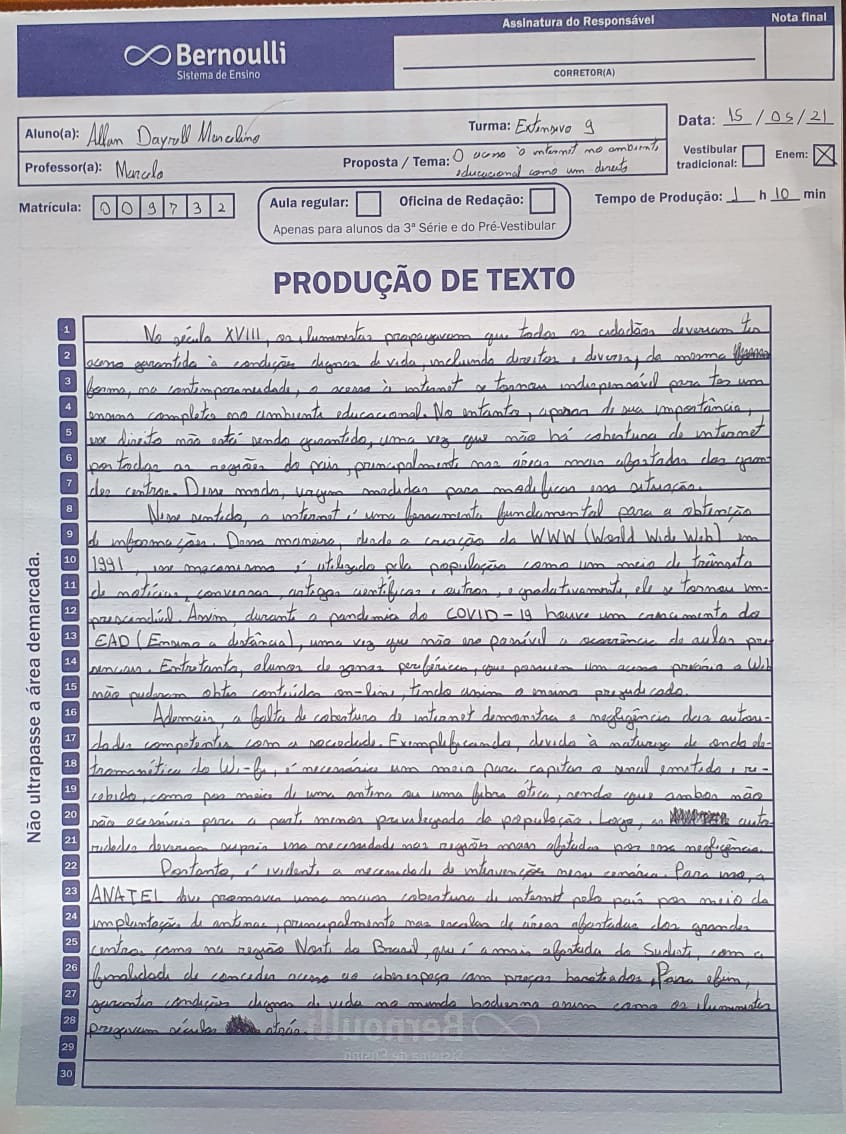 Assinatura do Responsável
Nota final
Bernoulli
Sistema de Ensino
CORRETOR(A)
Aluno(a): Allan Dayrell Marcelino
Turma: Extensivo 9
Data: 15 / 05 / 21
Professor(a): Marcelo
Proposta / Tema: O acesso à internet no ambiente
educacional como um direito
Vestibular tradicional:
Enem: X
Matrícula: 0 0 9 7 3 2
Aula regular:
Oficina de Redação:
Apenas para alunos da 3ª Série e do Pré-Vestibular
Tempo de Produção: 1 h 10 min
PRODUÇÃO DE TEXTO
Não ultrapasse a área demarcada.
1 No século XVIII, os iluministas propagavam que todos os cidadãos deveriam ter
2 acesso garantido à condições dignas de vida, incluindo direitos e deveres, da mesma
3 forma, na contemporaneidade, o acesso à internet se tornou indispensável para ter um
4 ensino completo no ambiente educacional. No entanto, apesar de sua importância,
5 esse direito não está sendo garantido, uma vez que não há cobertura de internet
6 por todas as regiões do país, principalmente nas áreas mais afastadas dos gran-
7 des centros. Desse modo, urgem medidas para modificar essa situação.
8 Nesse sentido, a internet é uma ferramenta fundamental para a obtenção
9 de informações. Dessa maneira, desde a criação da WWW (World Wide Web) em
10 1991, esse mecanismo é utilizado pela população como um meio de trâmite
11 de notícias, conversas, artigos científicos e outros, e gradativamente, ele se tornou im-
12 prescindível. Assim, durante a pandemia do COVID-19 houve um crescimento do
13 EAD (Ensino a distância), uma vez que não era possível a ocorrência de aulas pre-
14 senciais. Entretanto, alunos de zonas periféricas, que possuem um acesso precário a Web
15 não puderam obter conteúdos on-line, tendo assim o ensino prejudicado.
16 Ademais, a falta de cobertura de internet demonstra a negligência das autori-
17 dades competentes com a sociedade. Exemplificando, devido à natureza de onda ele-
18 tromagnética do Wi-fi, é necessário um meio para captar o sinal emitido e re-
19 cebido, como por meio de uma antena ou uma fibra ótica, sendo que ambos não
20 são acessíveis para a parte menos privilegiada da população. Logo, as auto-
21 ridades deveriam suprir essa necessidade nas regiões mais afetadas por essa negligência.
22 Portanto, é evidente a necessidade de intervenções nesse cenário. Para isso, a
23 ANATEL deve promover uma maior cobertura de internet pelo país por meio da
24 implantação de antenas, principalmente nas escolas de áreas afastadas dos grandes
25 centros como na região Norte do Brasil, que é a mais afastada do Sudeste, com a
26 finalidade de conceder acesso ao ciberespaço com preços barateados. Para enfim,
27 garantir condições dignas de vida no mundo hodierno assim como os iluministas
28 pregavam séculos atrás.
29
30